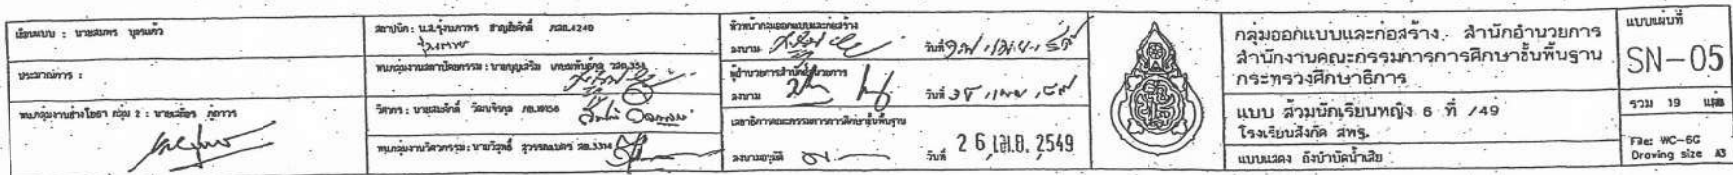 เขียนแบบ : นายสมพร บุตรแก้ว
ประมาณการ :
หน.กลุ่มงานช่างโยธา กลุ่ม 2 : นายเสถียร
สถาปนิก : น.ส.รุ่งนภาพร ชาญชัยศักดิ์ ภสถ.4240
หน.กลุ่มงานสถาปัตยกรรม : นายบุญเสริม วสถ.351
วิศวกร : นายสมศักดิ์
หน.กลุ่มงานวิศวกรรม : นายวิสุทธิ์ สุวรรณเนตร สย.3314
หัวหน้ากลุ่มออกแบบและก่อสร้าง
ลงนาม วันที่
ผู้อำนวยการสำนักอำนวยการ
ลงนาม วันที่
เลขาธิการคณะกรรมการการศึกษาขั้นพื้นฐาน
ลงนามอนุมัติ วันที่ 26 เม.ย. 2549
กลุ่มออกแบบและก่อสร้าง สำนักอำนวยการ
สำนักงานคณะกรรมการการศึกษาขั้นพื้นฐาน
กระทรวงศึกษาธิการ
แบบ ส้วมนักเรียนหญิง 6 ที่ /49
โรงเรียนสังกัด สพฐ.
แบบแสดง ถังบำบัดน้ำเสีย
แบบแผ่นที่
SN-05
รวม 19 แผ่น
File: WC-6G
Drawing size A3